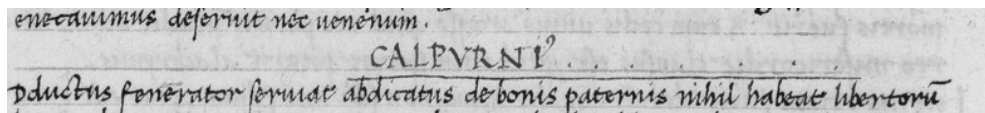 enecavimus deseruit nec venenum.
CALPVRNIꝰ.
Dductus fenerator serviat abdicatus de bonis paternis nihil habeat libertorū